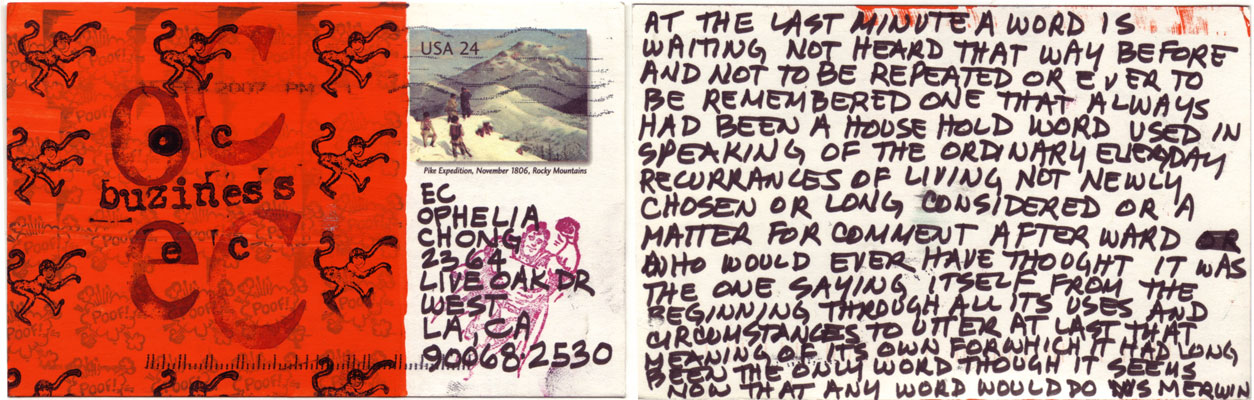 USA 24
2007 PM
Pike Expedition, November 1806, Rocky Mountains
oc
o c
buziness
e c
ec
Poof!
EC
OPHELIA
CHONG
2364
LIVE OAK DR
WEST
LA, CA
90068 2530
AT THE LAST MINUTE A WORD IS
WAITING NOT HEARD THAT WAY BEFORE
AND NOT TO BE REPEATED OR EVER TO
BE REMEMBERED ONE THAT ALWAYS
HAD BEEN A HOUSE HOLD WORD USED IN
SPEAKING OF THE ORDINARY EVERYDAY
RECURRANCES OF LIVING NOT NEWLY
CHOSEN OR LONG CONSIDERED OR A
MATTER FOR COMMENT AFTER WARD
WHO WOULD EVER HAVE THOUGHT IT WAS
THE ONE SAYING ITSELF FROM THE
BEGINNING THROUGH ALL ITS USES AND
CIRCUMSTANCES TO UTTER AT LAST THAT
MEANING OF ITS OWN FOR WHICH IT HAD LONG
BEEN THE ONLY WORD THOUGH IT SEEMS
NOW THAT ANY WORD WOULD DO WS MERWIN